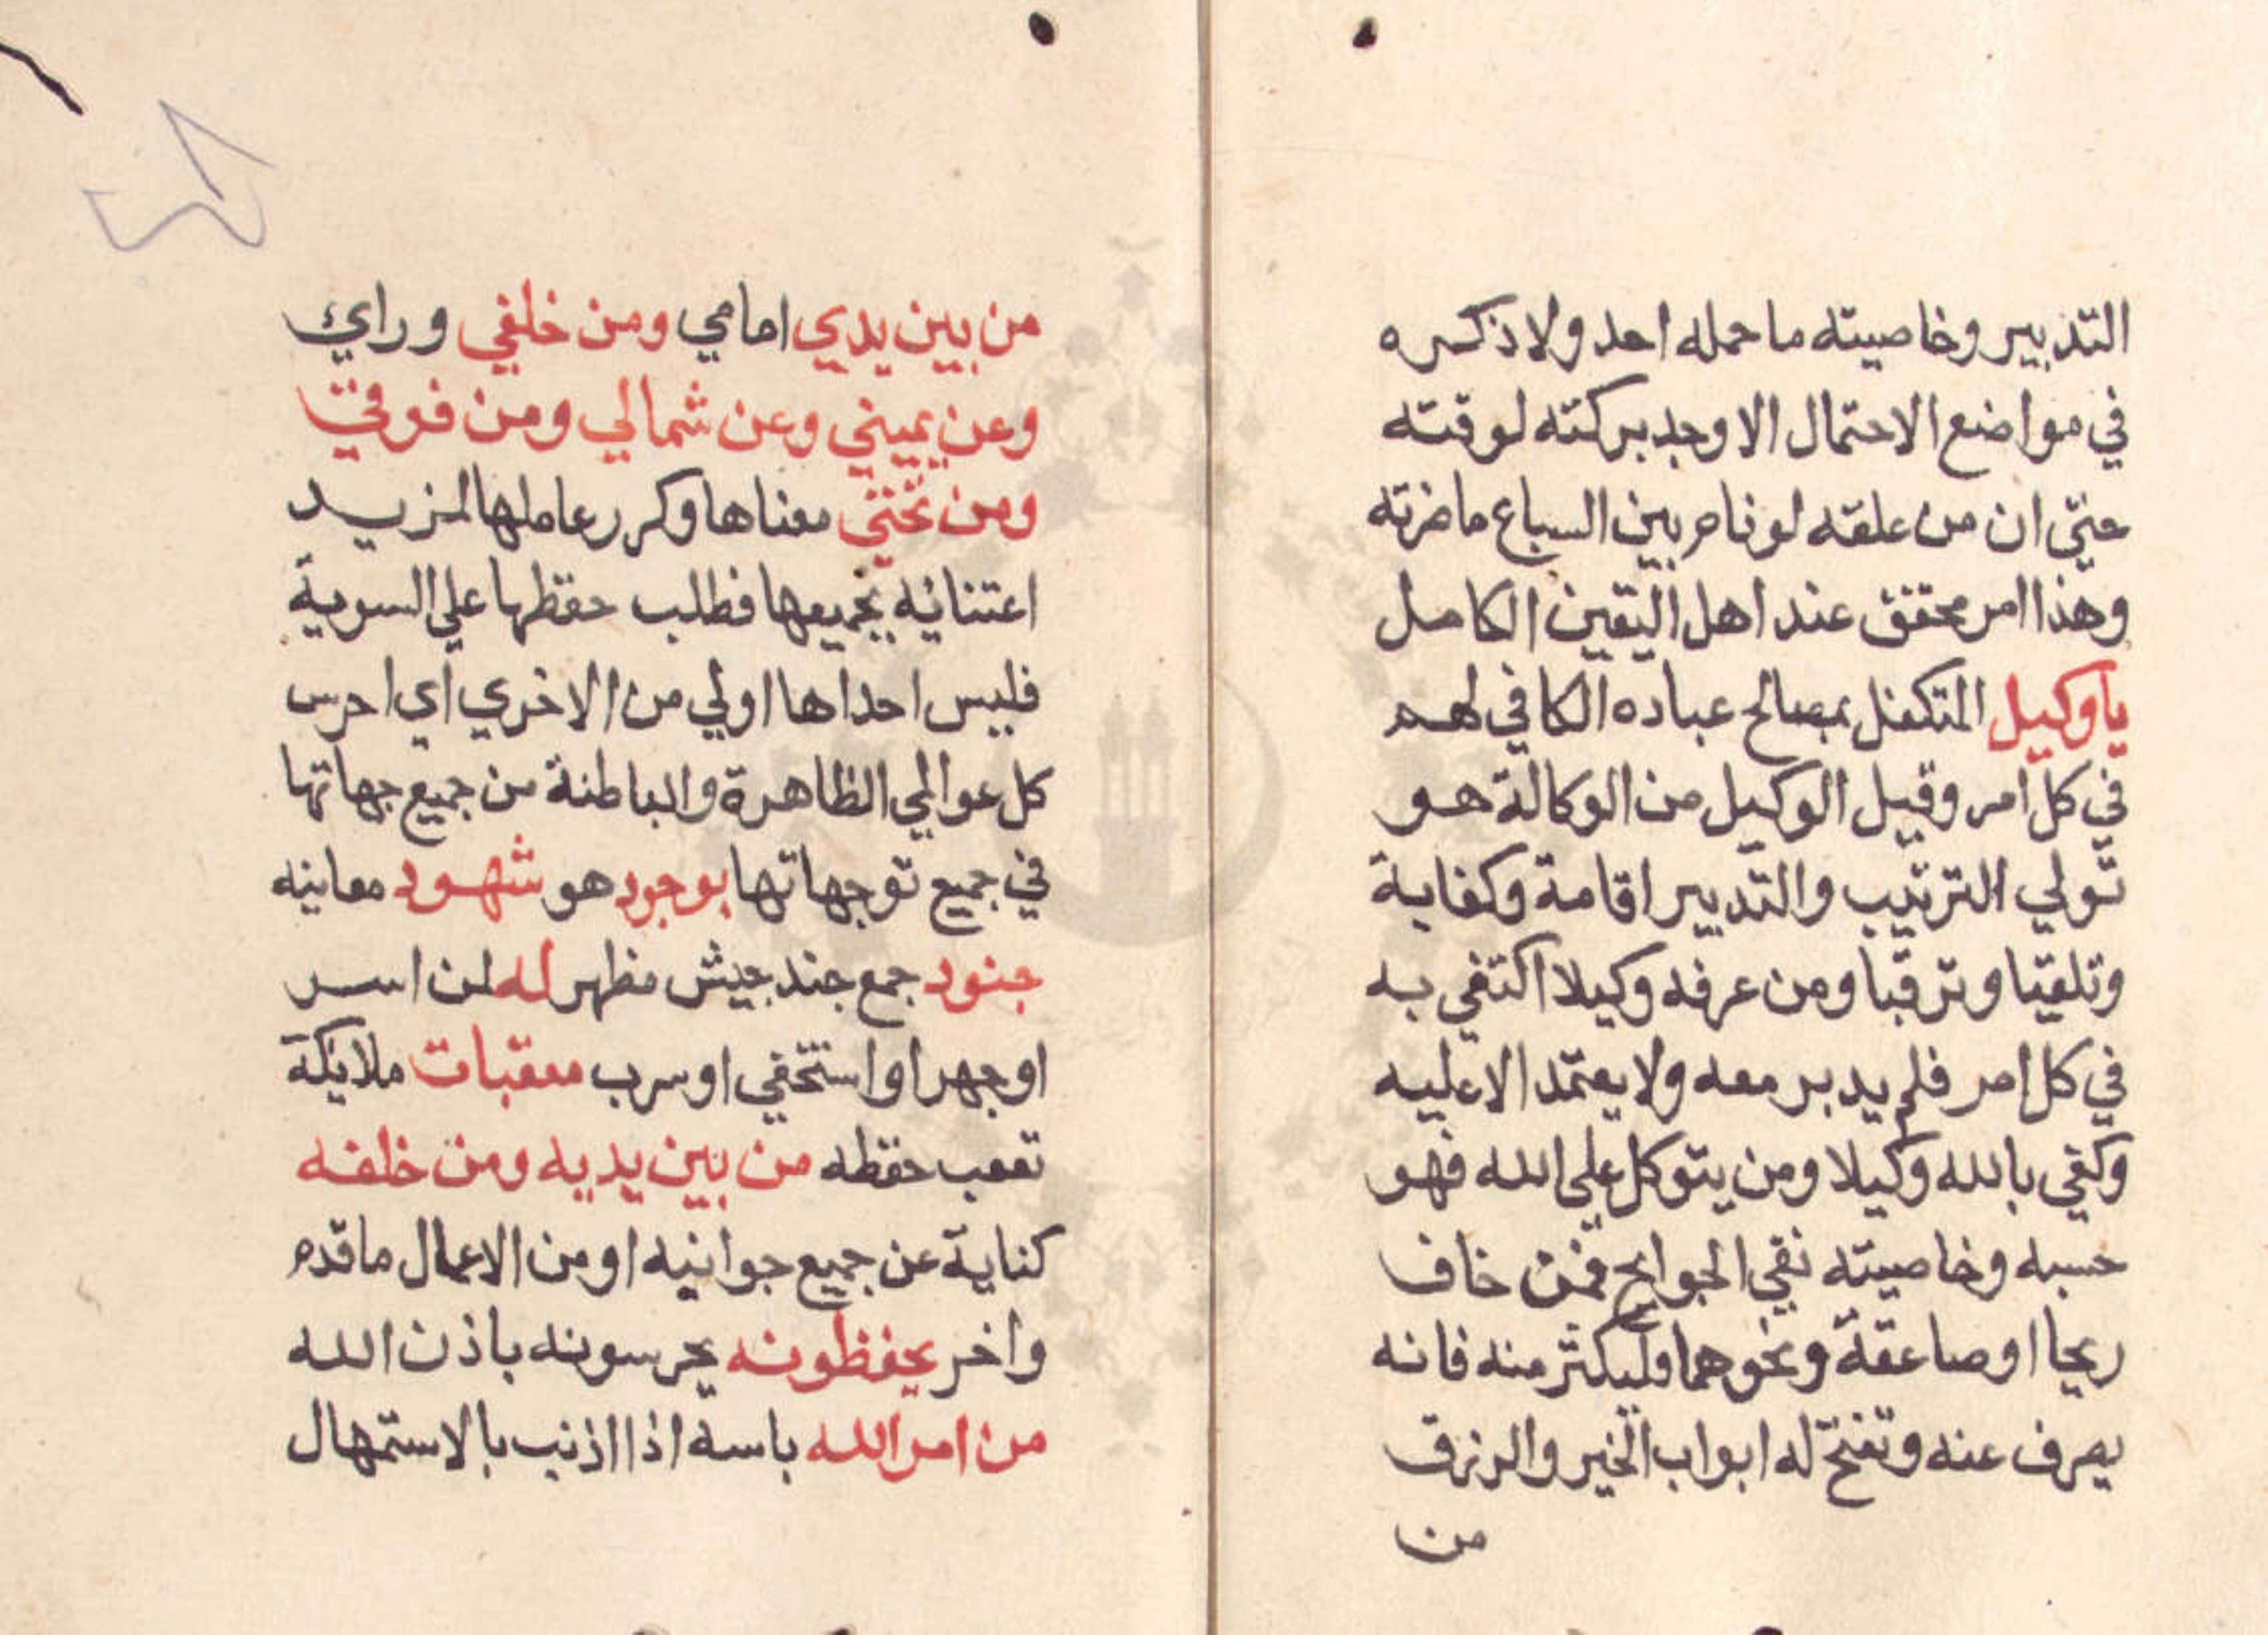 التدبير وخاصيته ما حمله احد ولا ذكره
في مواضع الاحتمال الا وجد بركته لوقته
حتى ان من علقه لو نام بين السباع ما ضرته
وهذا امر محقق عند اهل اليقين الكامل
يا وكيل المتكفل بمصالح عباده الكافي لهم
في كل امر وقيل الوكيل من الوكالة هو
تولي الترتيب والتدبير اقامة وكفاية
وتلقيا وترقبا ومن عرفه وكيلا اكتفي به
في كل امر فلم يدبر معه ولا يعتمد الا عليه
وكفي بالله وكيلا ومن يتوكل على الله فهو
حسبه وخاصيته نفي الجوايح فمن خاف
ريحا او صاعقة ونحوهما فليكثر منه فانه
يصرف عنه وتفتح له ابواب الخير والرزق
من
من بين يدي امامي ومن خلفي وراي
وعن يميني وعن شمالي ومن فوقي
ومن تحتي معناها وكرر عاملها لمزيد
اعتنائه بجميعها فطلب حفظها علي السوية
فليس احداها اولي من الاخري اي احرس
كل عوالمي الظاهرة والباطنة من جميع جهاتها
في جميع توجهاتها بوجود هو شهود معاينه
جنود جمع جند جيش مظهر له لمن اسر
او جهر او استخفي او سرب معقبات ملايكة
تعقب حفظه من بين يديه ومن خلفه
كناية عن جميع جوانبه او من الاعمال ما قدم
واخر يحفظونه يحرسونه باذن الله
من امر الله باسه اذا اذنب بالاستمهال